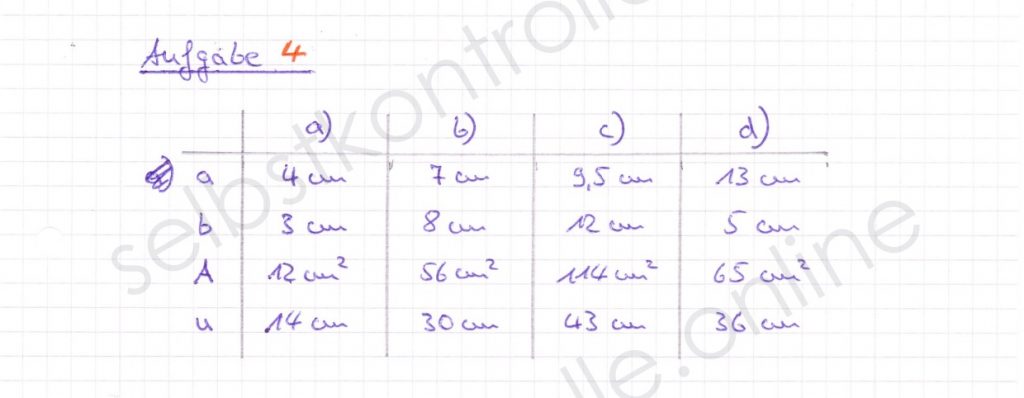 Aufgabe 4
a) b) c) d)
a 4 cm 7 cm 9,5 cm 13 cm
b 3 cm 8 cm 12 cm 5 cm
A 12 cm² 56 cm² 114 cm² 65 cm²
u 14 cm 30 cm 43 cm 36 cm
selbstkontrolle.online
lle.online